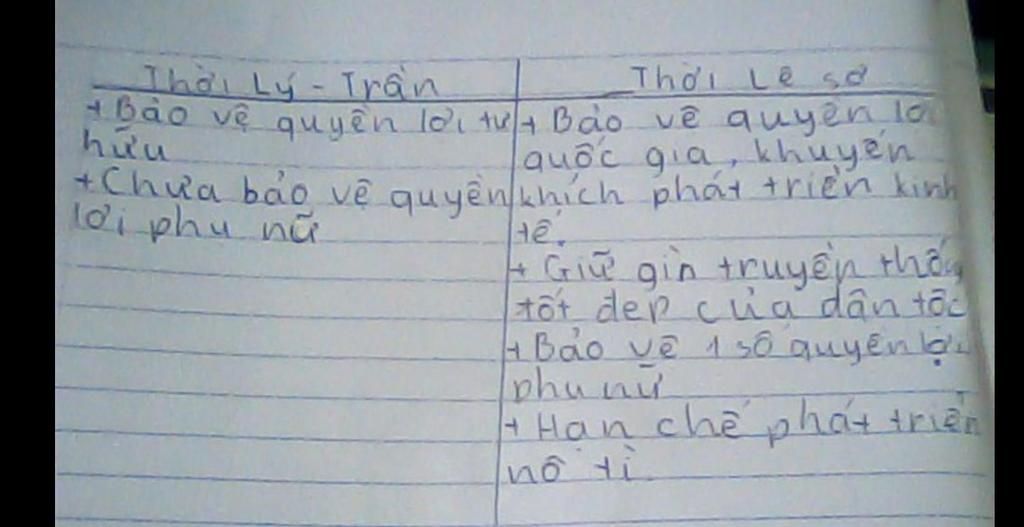 Thời Lý - Trần
+ Bảo vệ quyền lợi tư
hữu
+ Chưa bảo vệ quyền
lợi phụ nữ
Thời Lê sơ
+ Bảo vệ quyền lợi
quốc gia, khuyến
khích phát triển kinh
tế.
+ Giữ gìn truyền thống
tốt đẹp của dân tộc
+ Bảo vệ 1 số quyền lợi
phụ nữ
+ Hạn chế phát triển
nô tì